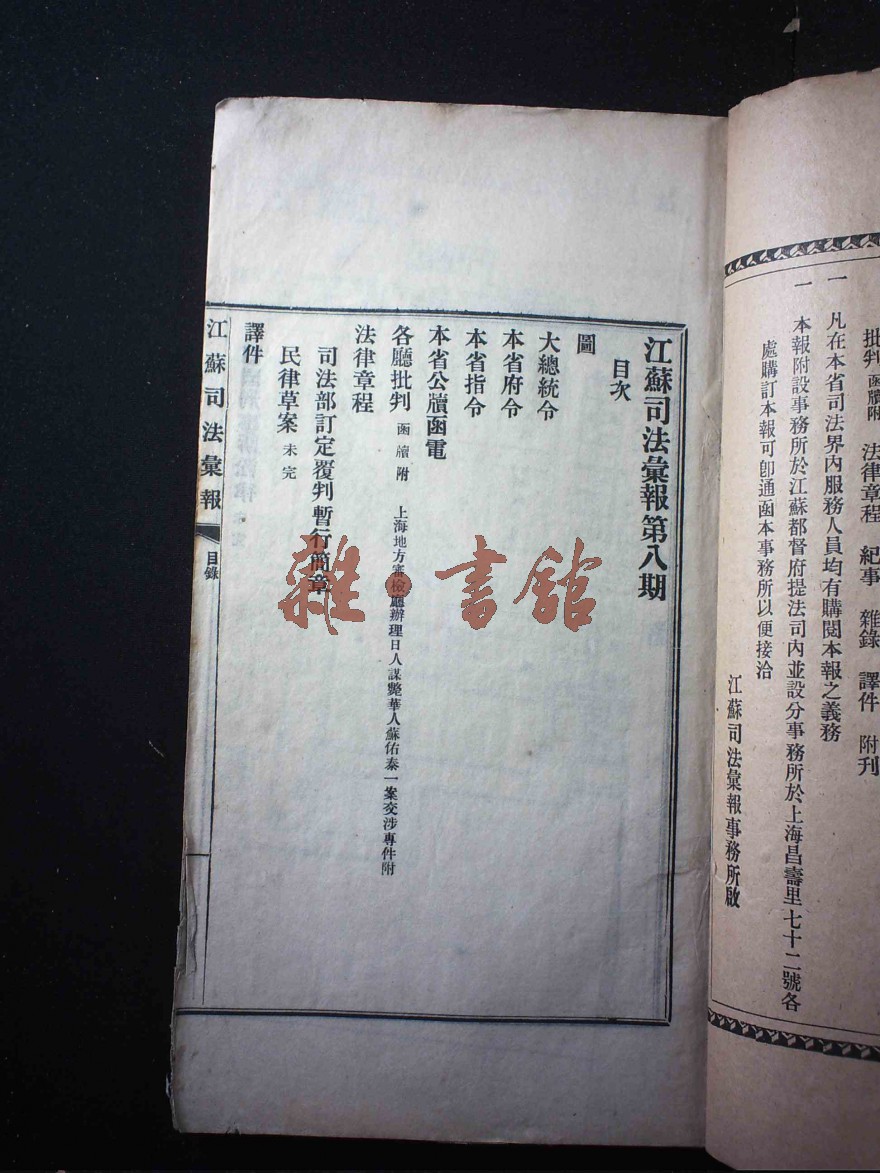 批判 函牘附 法律章程 紀事 雜錄 譯件 附刊
一 凡在本省司法界內服務人員均有購閱本報之義務
一 本報附設事務所於江蘇都督府提法司內並設分事務所於上海昌壽里七十二號各
處購訂本報可即通函本事務所以便接洽
江蘇司法彙報事務所啟
江蘇司法彙報第八期
目次
圖
大總統令
本省府令
本省指令
本省公牘函電
各廳批判 函牘附 上海地方審檢廳辦理日人謀斃華人蘇佑泰一案交涉專件附
法律章程
司法部訂定覆判暫行簡章
民律草案 未完
譯件
江蘇司法彙報 目錄
雜·書館